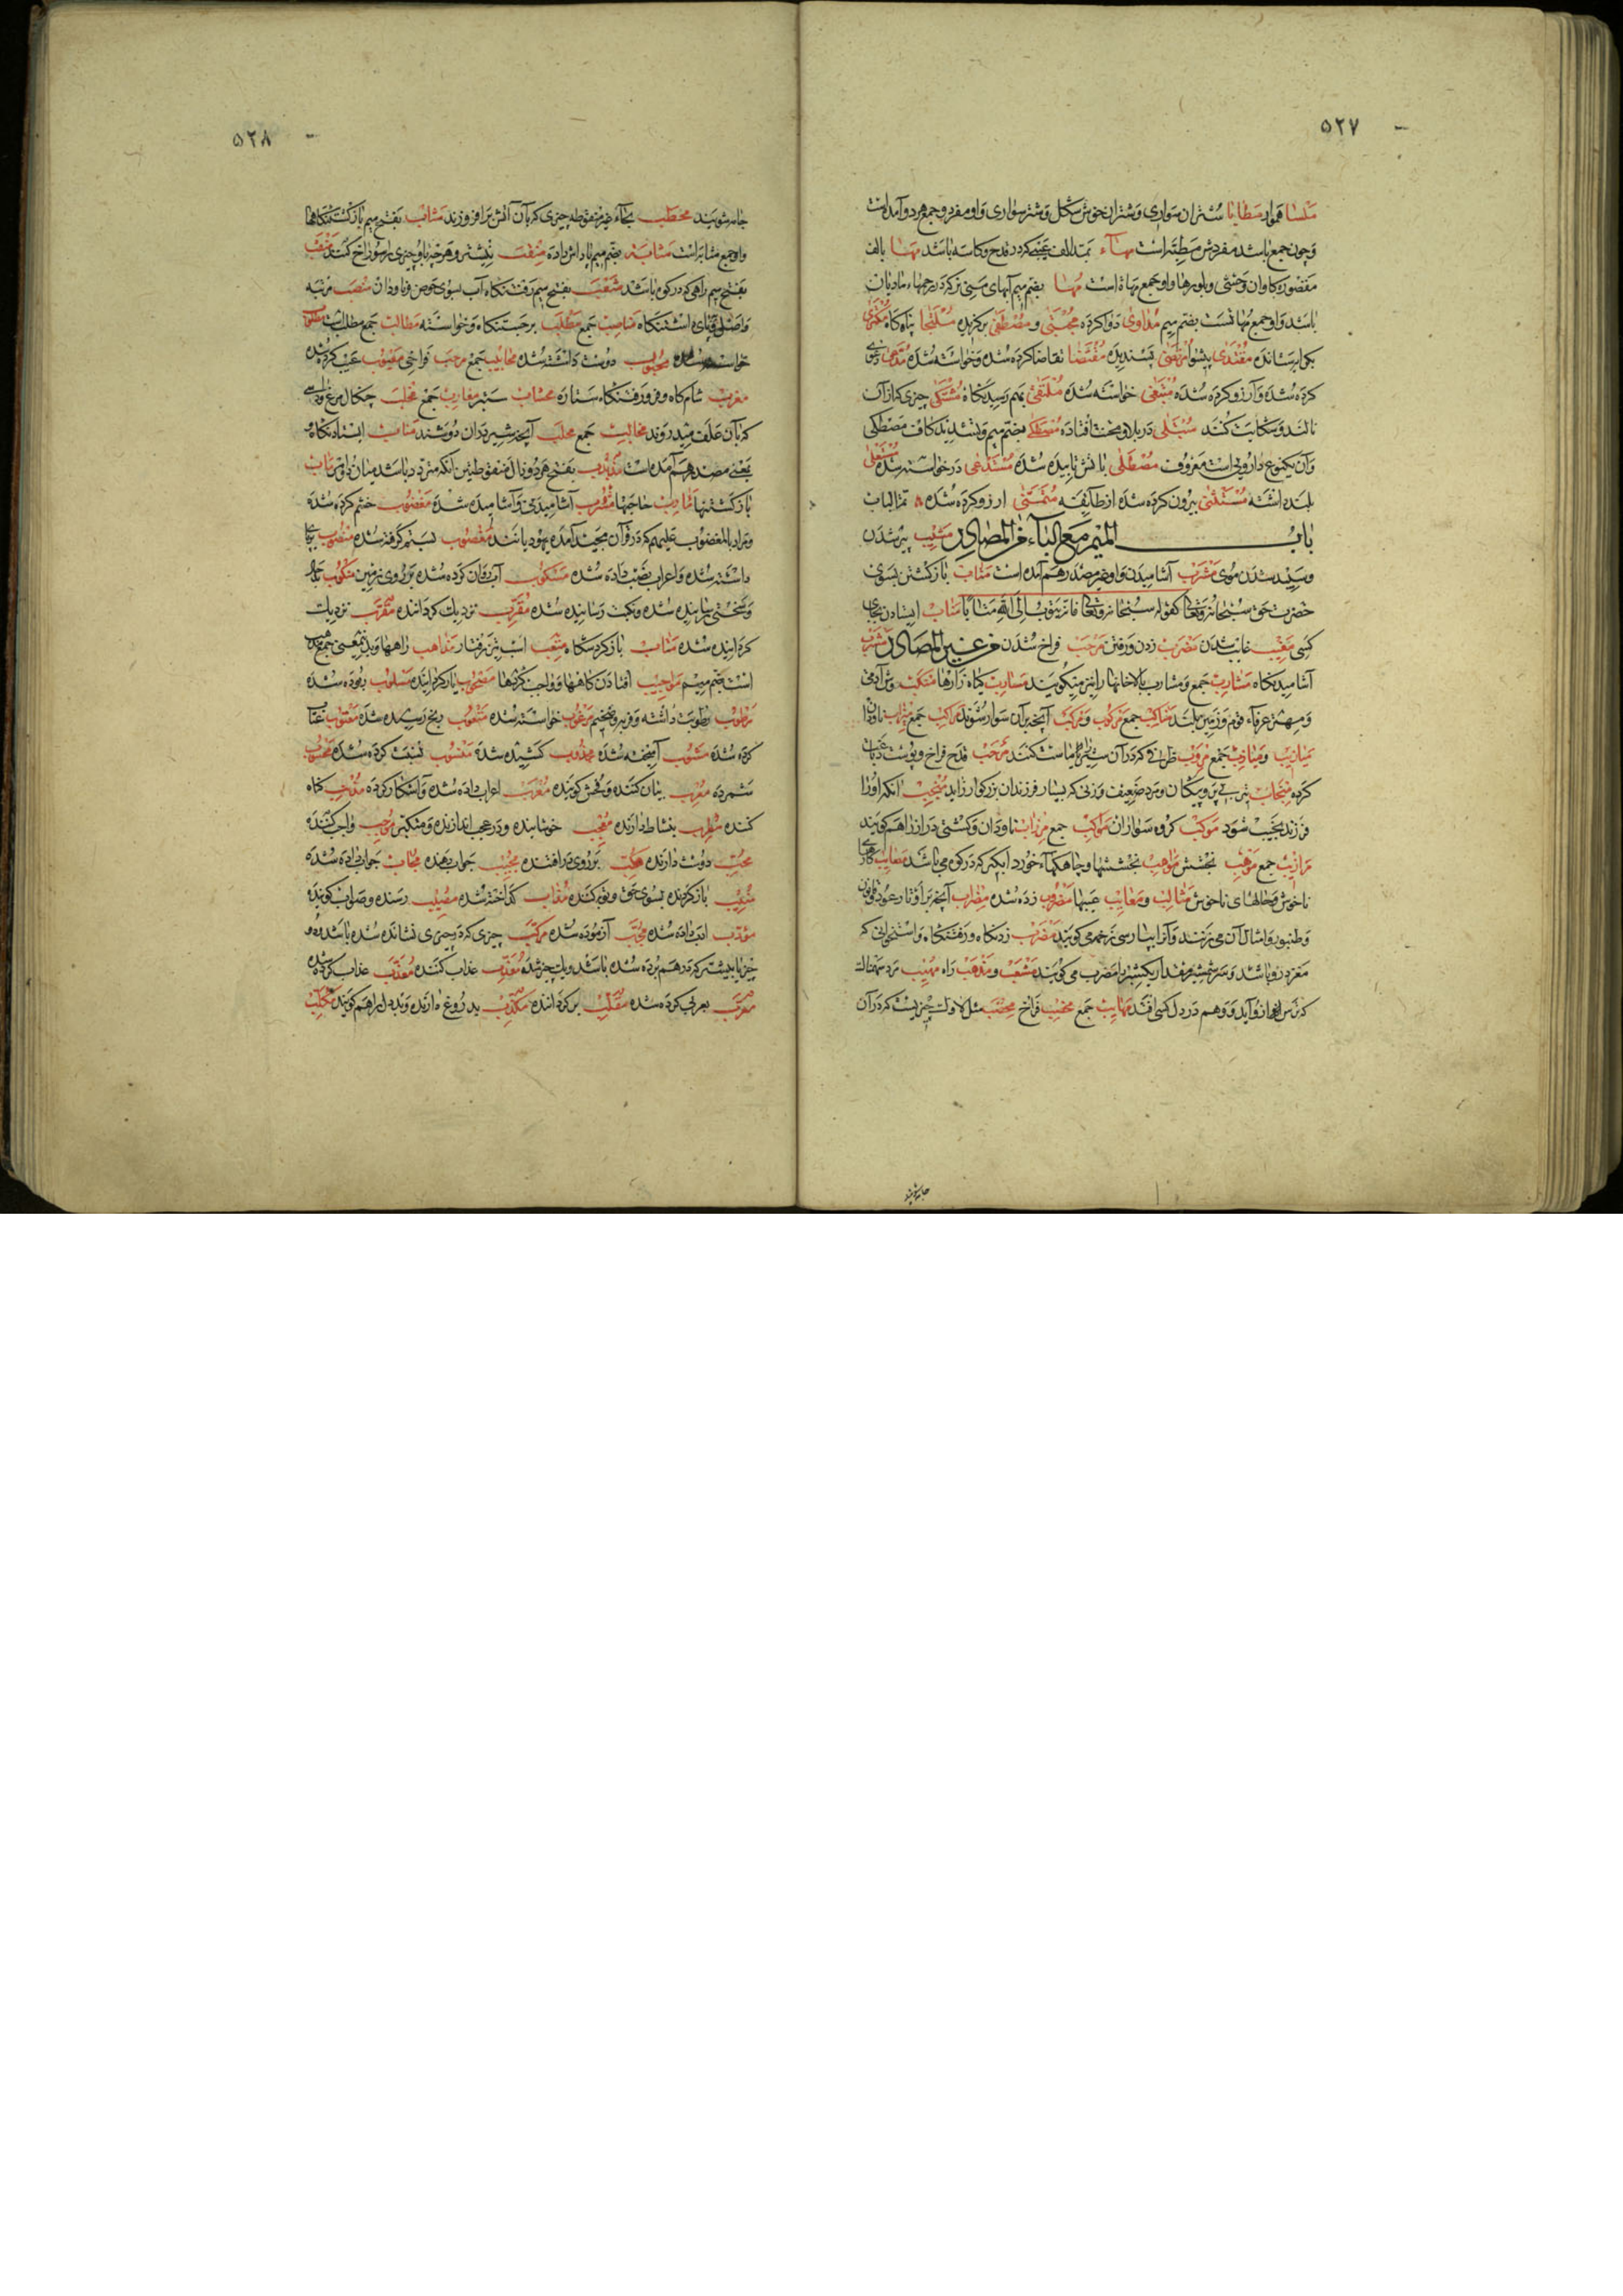 ۵۲۷
ملسا هموار مطایا شتران سواری و شتران خوش شکل و شتر سواری و او مفرد و جمع هر دو آمده است
و چون جمع باشد مفردش مطیة است مهآء بمد الف عیبی که در قدح و کاسه باشد مها بالف
مقصوره کاوان وحشی و بلورها و او جمع مهاة است مها بضم میم آبهای منی نر که در رحمهاء مادیان
باشد و او جمع مهاتست بضم میم مداوی دوا کرده مجتبی و مصطفی برکزیده ملتجا پناه کاه مکتری
بکرا ستاننده مقتدی پیشوا مرتضی پسندیده مقتضا تقاضا کرده شده و خواسته شده مدعی دعوی
کرده شده و آرزو کرده شده مبتغی خواسته شده ملتقی بهم رسیدنکاه مشتکی چیزی که از آن
نالند و شکایت کنند مبتلی در بلا و محنت افتاده مصطکی بضم میم و تشدید کاف مصطکی
و آن یکنوع داروئی است معروف مصطلی باتش تابیده شده مستدعی در خواسته شده مستعلی
بلند داشته مستثنی بیرون کرده شده از طایفه متمنی ارزو کرده شده تم الباب
باب المیم مع الباء من المصادر مشیب پیر شدن
و سپید شدن موی مشرب آشامیدن و او غیر مصدر هم آمده است متاب باز کشتن بسوی
حضرت حق سبحانه و تعالی کقوله سبحانه و تعالی فانه یتوب الی الله متابا مناب ایستادن بجای
کسی مغیب غایب شدن مضرب زدن و رفتن مرحب فراخ شدن من غیر المصادر مشرب
آشامیدنکاه مشارب جمع و مشارب بالاخانها را نیز میکویند مسارب کیاه زارها منکب دوش آدمی
و مهتر عرفاء قوم و زمین بلند مناکب جمع مرکوب و مرکب آنچه بران سوار شوند مراکب جمع میزاب ناودان
میازیب و میازیب جمع مروب ظرفی که در آن شیر را ماست کنند مرحب قدح فراخ و پوست دباغت
کرده منجاب تیر بی پر و پیکان و مرد ضعیف و زنی که بسیار فرزندان بزرکوار زاید منجب انکه او را
فرزند نجیب شود موکب کروه سواران مواکب جمع مرزاب ناودان و کشتی دراز را هم کویند
مرازیب جمع موهب بخشش مواهب بخششها و چاهکهاء خورد آبکیر که در کوه می باشد معایب کارهای
ناخوش و حالهای ناخوش مثالب و معایب عیبها مضروب زده شده مضراب آنچه بر اوتار عود و قانون
و طنبور و امثال آن می زنند و آنرا بپارسی زخمه می کویند مضرب زدنکاه و رفتنکاه و استخوانی که
مغز درو باشد و سر شمشیر مقدار یکشبر را مضرب می کویند مشعب و مذهب راه مهیب مرد سهمناک
که ترس از او آید و وهم در دل کسی افتد مهایب جمع مخیب فراخ مخصب مثل الاول چیزیست که در آن
جامه شویند
۵۲۸
جامه شویند محطب بحآء غیر منقوطه چیزی که بآن آتش بر افروزند مثاب بفتح میم باز کشتنکاهها
و او جمع مثابه است مثابه بضم میم پاداش داده منقب نیشتر و هرچه باو چیزی را سوراخ کنند منقب
بفتح میم راهی که در کوه باشد مثعب بفتح میم رفتنکاه آب بسوی حوض و ناودان منصب مرتبه
و اصل و جای استنکاه مناصب جمع مطلب برجستنکاه و خواسته مطالب جمع مطلب است مطلوب
خواسته شده محبوب دوست داشته شده محابیب جمع مرحب فراخی معیوب عیب کرده شده
مغرب شامکاه و فرو رفتنکاه ستاره محشاب ستبر مغارب جمع مخلب چنکال مرغ و داسی
که بآن علف میدروند مخالب جمع محلب آنچه شیر در آن دوشند مناب ایستادنکاه و
بمعنی مصدر هم آمده است مذبذب بفتح هر دو ذال منقوطتین آنکه متردد باشد میان دو امر مآب
باز کشتنها مآرب حاجتها مشرب آشامیدن و آشامیده شده مغضوب خشم کرده شده
و مراد بالمغضوب علیهم که در قرآن مجید آمده یهود باشند مغصوب بستم کرفته شده منصوب برپا
داشته شده و اعراب نصب داده شده مسکوب آب روان کرده شده بر روی زمین منکوب بد حال
و سختی رسانیده شده و نکبت رسانیده شده مقرب نزدیک کرداننده مقرب نزدیک
کردانیده شده مثاب باز کردنکاه منهب اسب تیز رفتار مذاهب راهها و بدین معنی جمع مذهب
است بفتح میم مواجب افتادن کاهها و واجب کردها مقلوب باز کردانیده مسلوب ربوده شده
مرطوب رطوبت داشته و فربه و ضخیم مرغوب خواسته شده متعوب برنج رسیده شده معتوب عتاب
کرده شده مشوب آمیخته شده مجذوب کشیده شده منسوب نسبت کرده شده محسوب
شمرده معرب بیان کننده و فحش کوینده معرب اعراب داده شده و آشکارا کرده مذنب کناه
کننده مطرب بنشاط دارنده معجب خوش آینده و در عجب اندازنده و متکبر موجب واجب کننده
محب دوست دارنده مکب بر روی در افتنده مجیب جواب دهنده مجاب جواب داده شده
منیب باز کردنده بسوی حق و توبه کننده مذاب کداخته شده مصیب رسنده و صواب کوینده
مؤدب ادب داده شده مجرب آزموده شده مرکب چیزی که در چیزی نشانده شده باشد و دو
چیز یا بیشتر که در هم برده شده باشند و یک چیز شده معذب عذاب کننده معذب عذاب کرده شده
معرب بعربی کرده شده مقلب بر کرداننده مکذب بدروغ دارنده و بددل را هم کویند مکلب